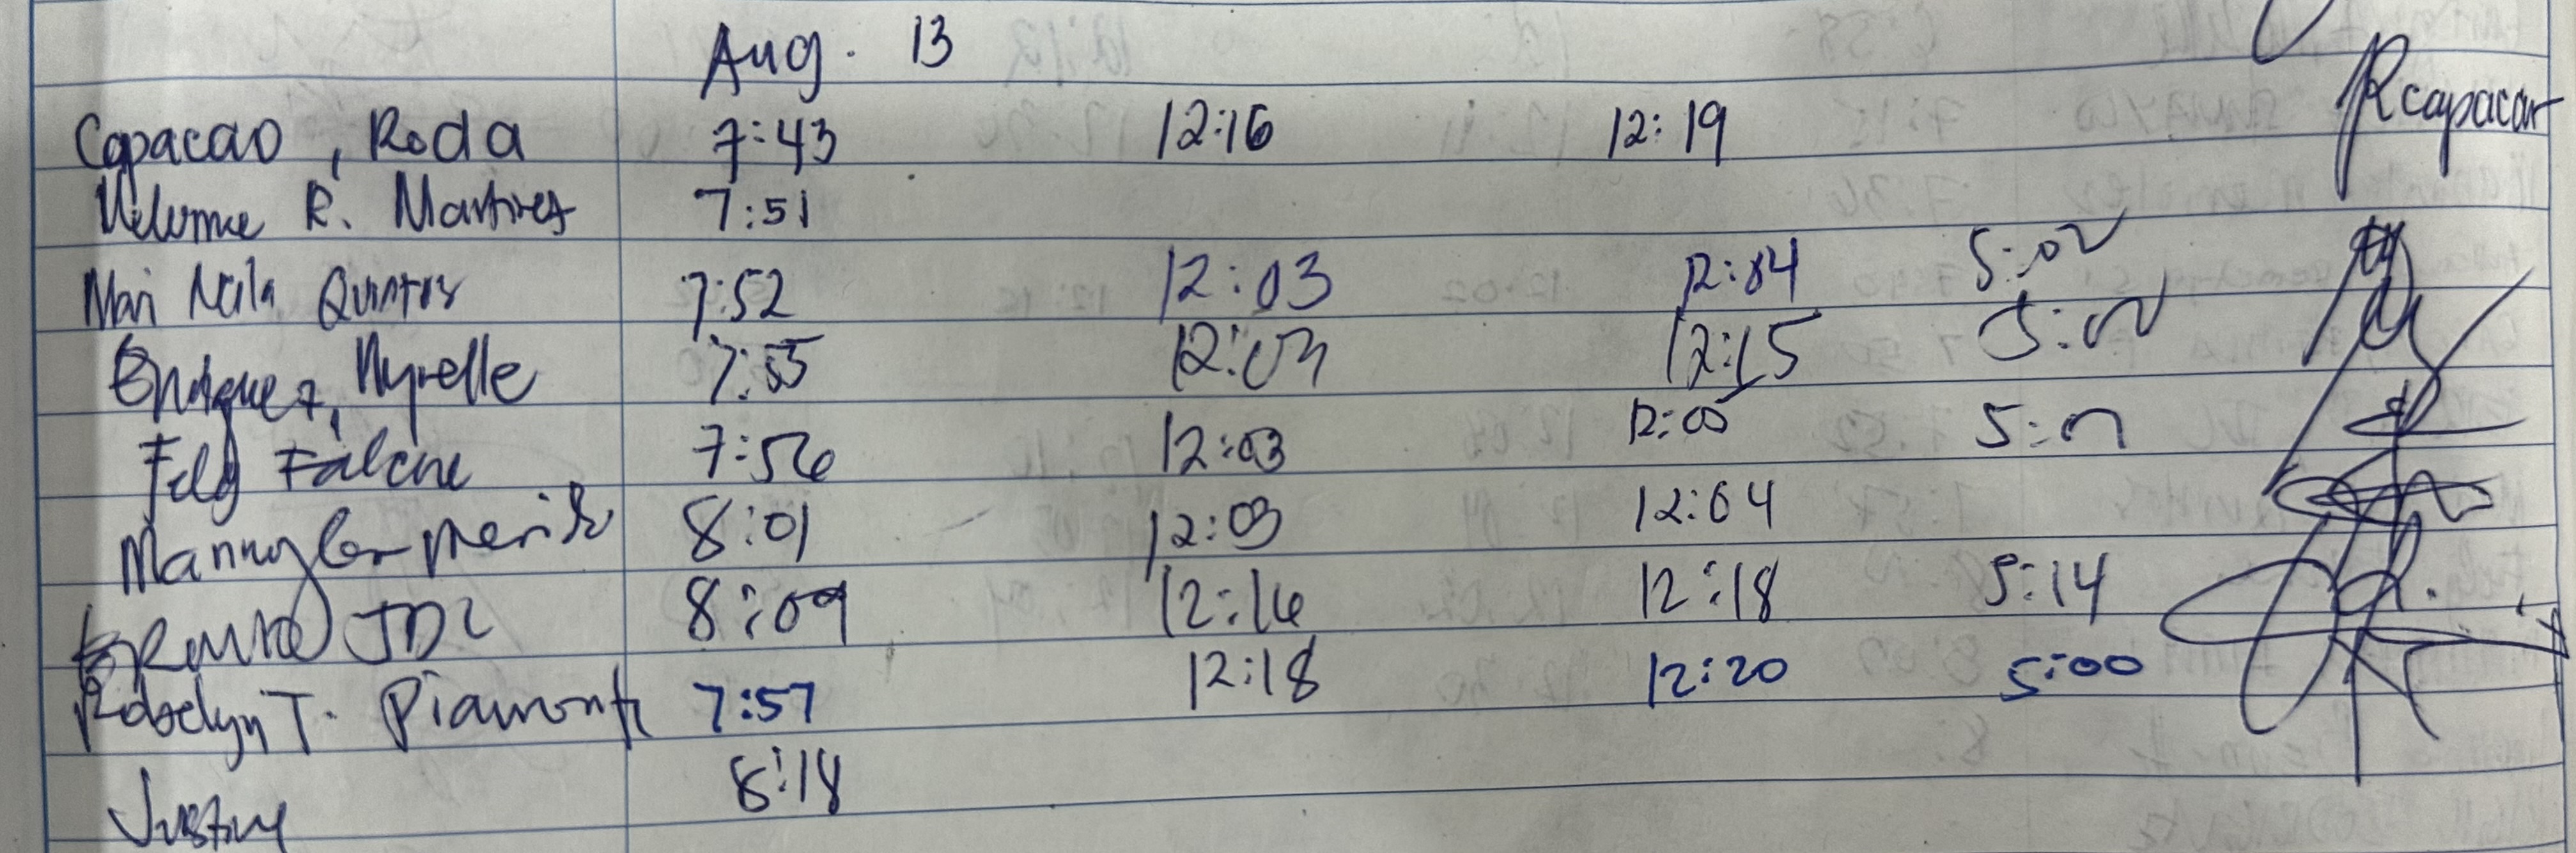 Aug. 13
Capacao, Roda 7:43 12:16 12:19 Rcapacao
R. Martinez 7:51
Mari Neila Quintos 7:52 12:03 12:04 5:02
Enriquez, Myrelle 7:55 12:03 12:15 5:01
Felg Falcne 7:56 12:03 12:05 5:01
Manny 8:01 12:03 12:04
JDL 8:09 12:16 12:18 5:14
Robelyn T. Piamonte 7:57 12:18 12:20 5:00
Justine 8:18